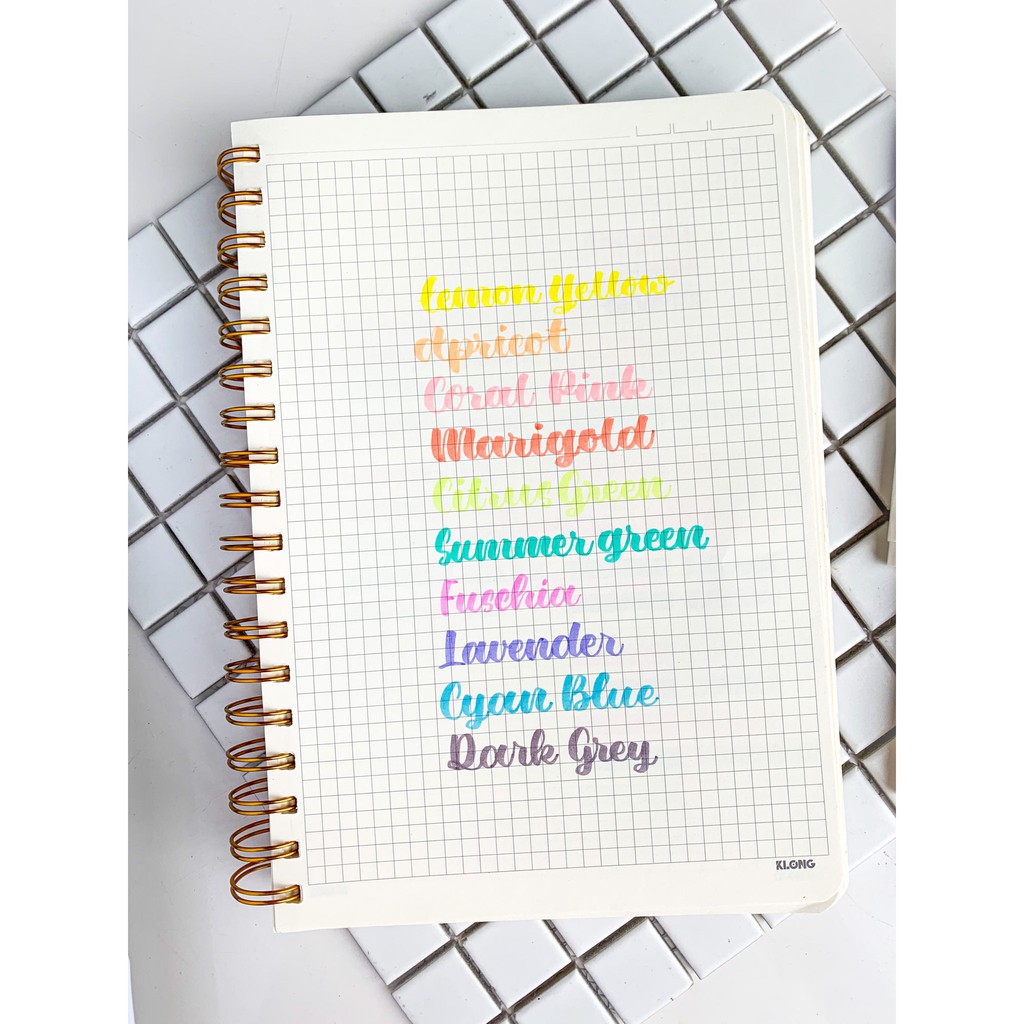 Lemon Yellow
Apricot
Coral Pink
Marigold
Citrus Green
Summer green
Fuschia
Lavender
Cyan Blue
Dark Grey
KLONG